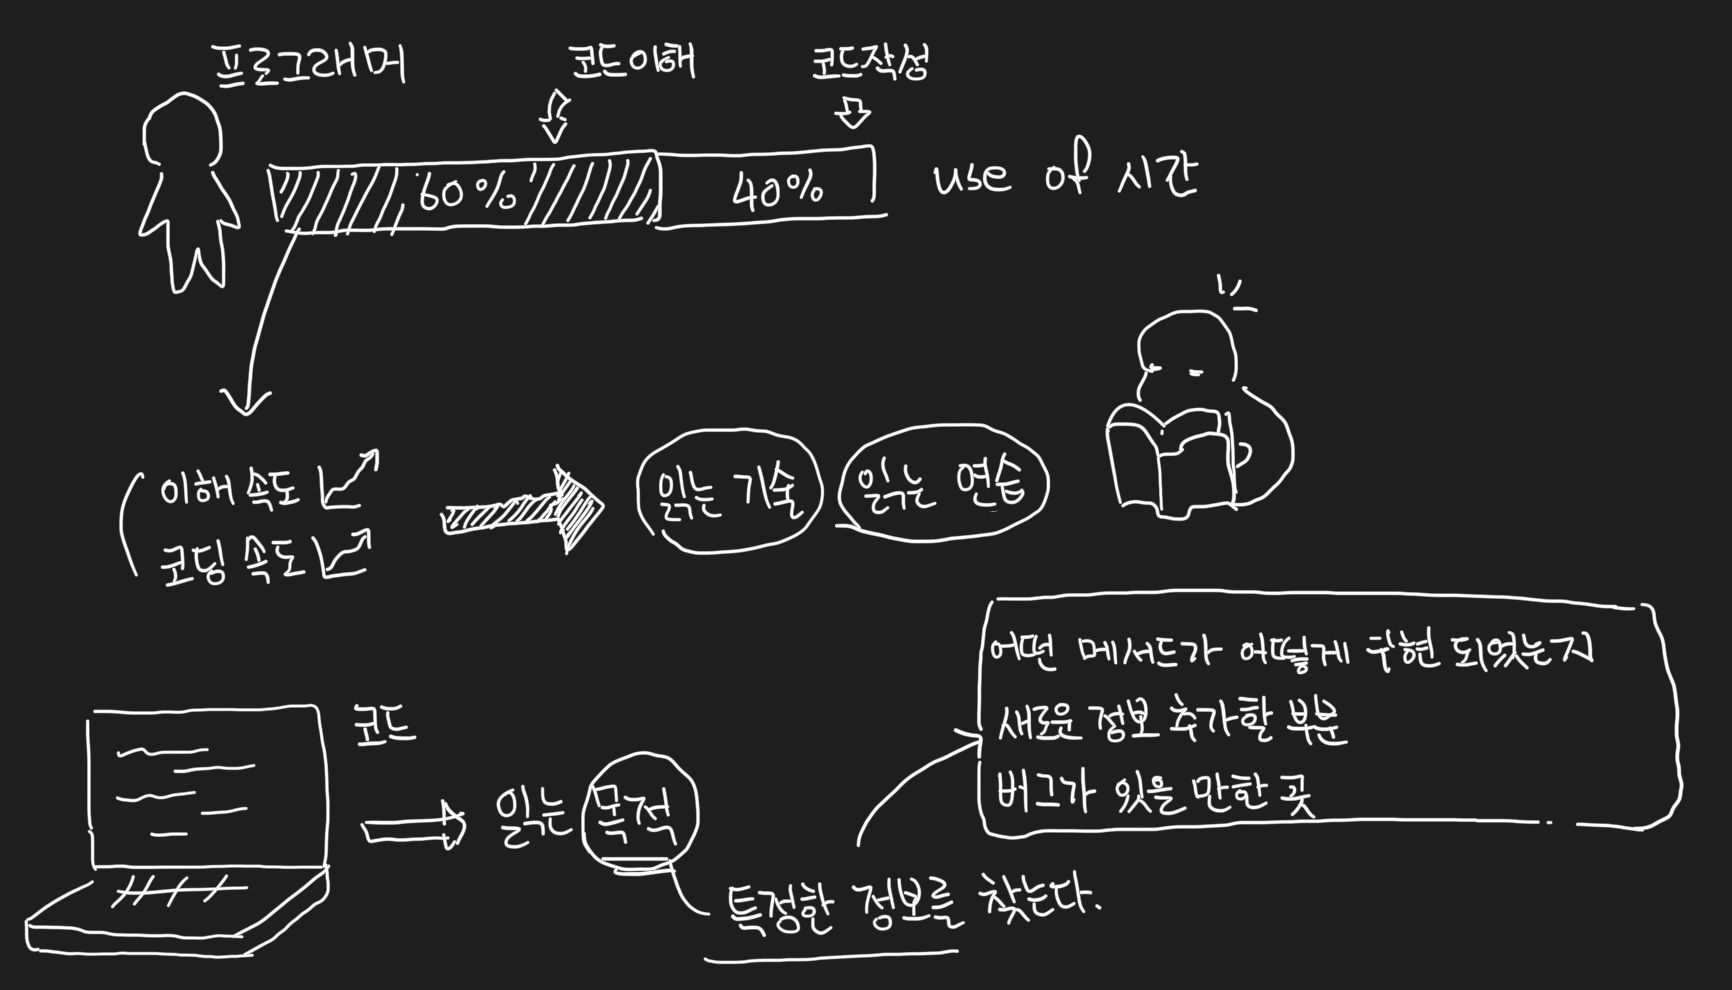 프로그래머
코드이해
코드작성
60%
40%
use of 시간
이해 속도
코딩 속도
읽는 기술
읽는 연습
코드
읽는 목적
특정한 정보를 찾는다.
어떤 메서드가 어떻게 구현 되었는지
새로운 정보 추가할 부분
버그가 있을 만한 곳